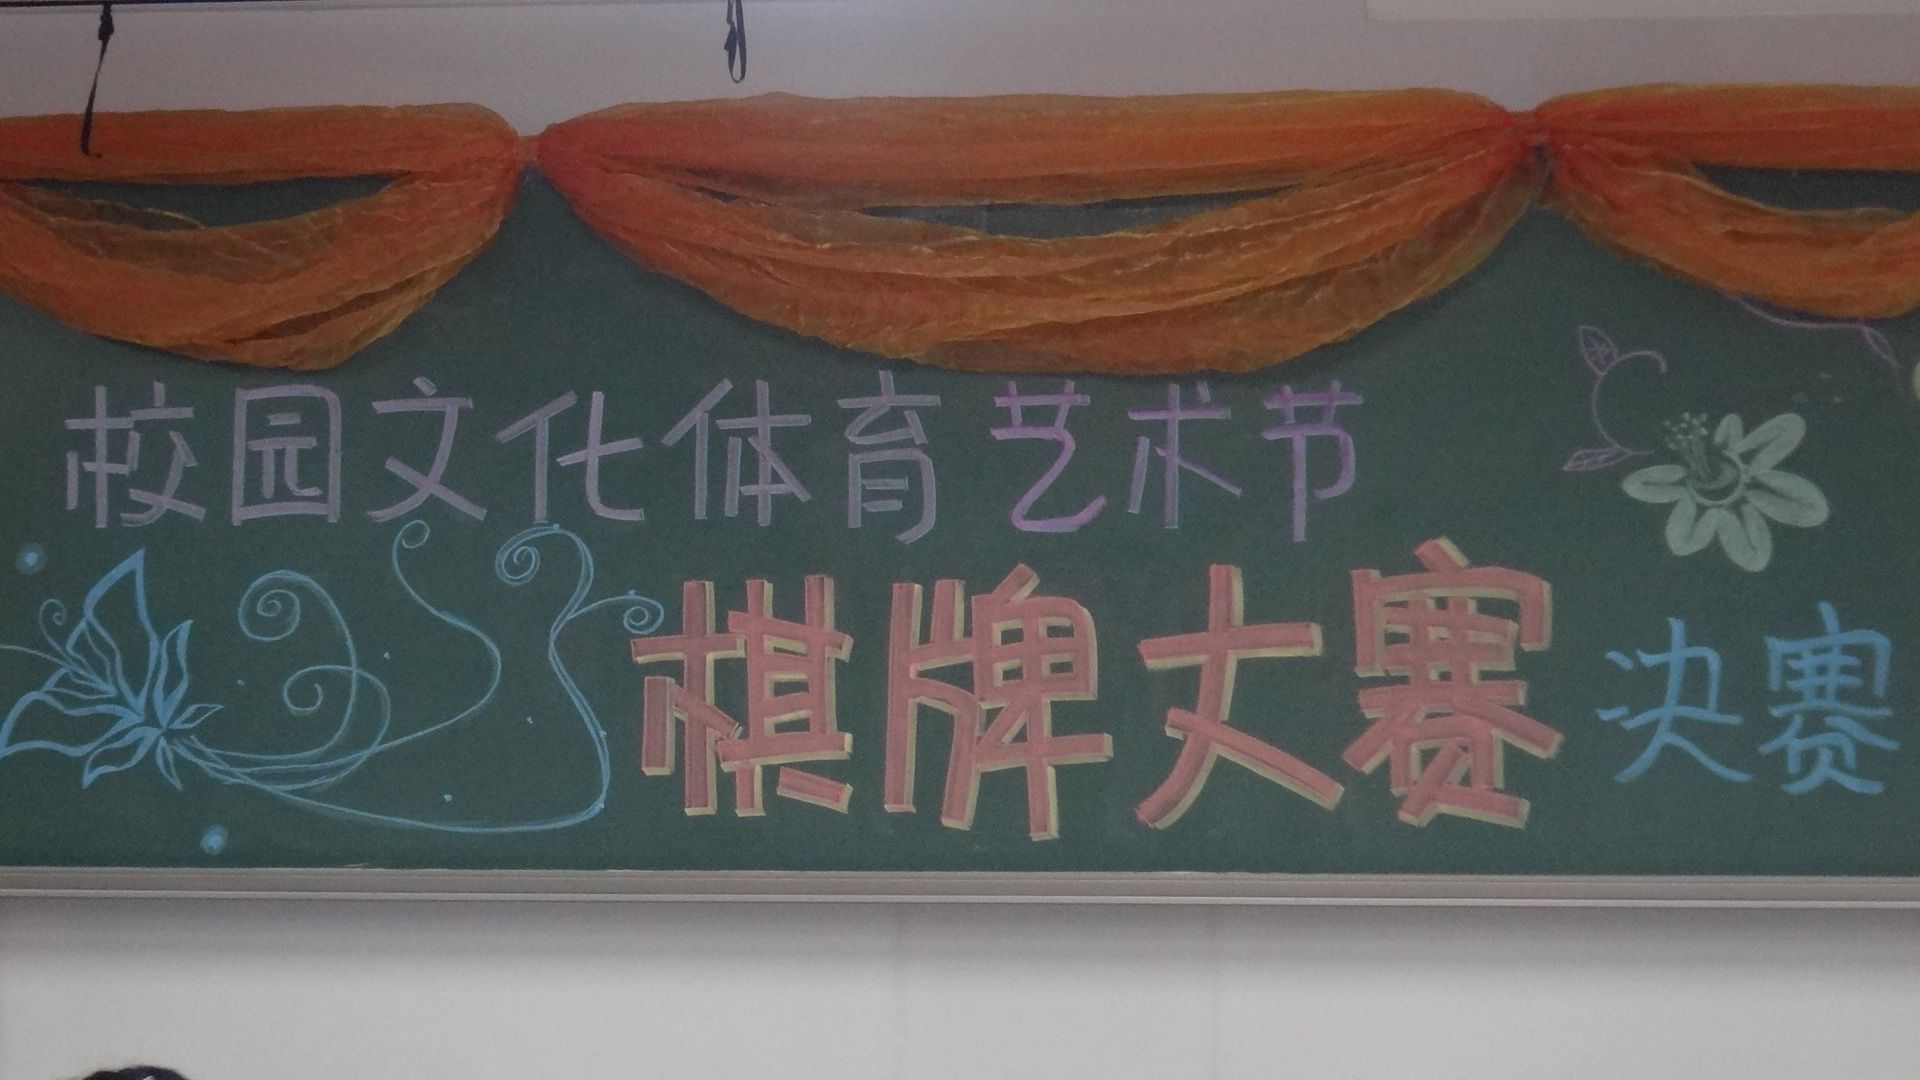 校园文化体育艺术节
棋牌大赛 决赛